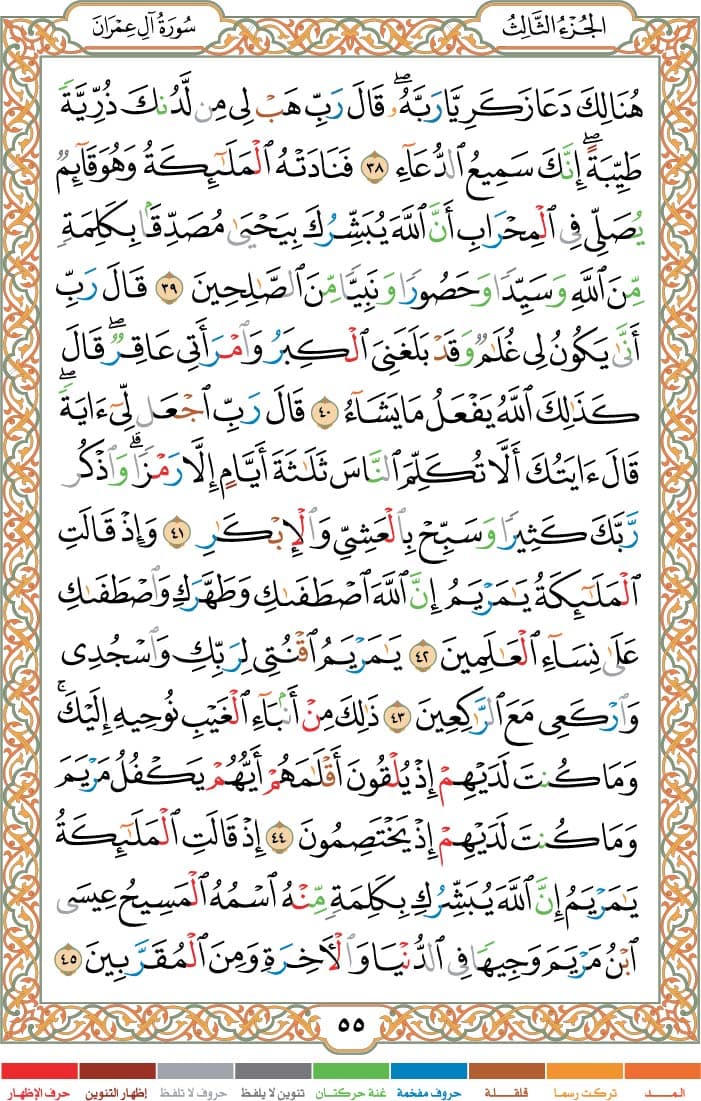 الجُزْءُ الثَّالِثُ
سُورَةُ آلِ عِمْرَانَ
هُنَالِكَ دَعَا زَكَرِيَّا رَبَّهُۥ ۖ قَالَ رَبِّ هَبْ لِى مِن لَّدُنكَ ذُرِّيَّةً
طَيِّبَةً ۖ إِنَّكَ سَمِيعُ ٱلدُّعَآءِ ٣٨ فَنَادَتْهُ ٱلْمَلَٰٓئِكَةُ وَهُوَ قَآئِمٌ
يُصَلِّى فِى ٱلْمِحْرَابِ أَنَّ ٱللَّهَ يُبَشِّرُكَ بِيَحْيَىٰ مُصَدِّقًۢا بِكَلِمَةٍ
مِّنَ ٱللَّهِ وَسَيِّدًا وَحَصُورًا وَنَبِيًّا مِّنَ ٱلصَّٰلِحِينَ ٣٩ قَالَ رَبِّ
أَنَّىٰ يَكُونُ لِى غُلَٰمٌ وَقَدْ بَلَغَنِىَ ٱلْكِبَرُ وَٱمْرَأَتِى عَاقِرٌ ۖ قَالَ
كَذَٰلِكَ ٱللَّهُ يَفْعَلُ مَا يَشَآءُ ٤٠ قَالَ رَبِّ ٱجْعَل لِّىٓ ءَايَةً ۖ
قَالَ ءَايَتُكَ أَلَّا تُكَلِّمَ ٱلنَّاسَ ثَلَٰثَةَ أَيَّامٍ إِلَّا رَمْزًا ۗ وَٱذْكُر
رَّبَّكَ كَثِيرًا وَسَبِّحْ بِٱلْعَشِىِّ وَٱلْإِبْكَٰرِ ٤١ وَإِذْ قَالَتِ
ٱلْمَلَٰٓئِكَةُ يَٰمَرْيَمُ إِنَّ ٱللَّهَ ٱصْطَفَىٰكِ وَطَهَّرَكِ وَٱصْطَفَىٰكِ
عَلَىٰ نِسَآءِ ٱلْعَٰلَمِينَ ٤٢ يَٰمَرْيَمُ ٱقْنُتِى لِرَبِّكِ وَٱسْجُدِى
وَٱرْكَعِى مَعَ ٱلرَّٰكِعِينَ ٤٣ ذَٰلِكَ مِنْ أَنۢبَآءِ ٱلْغَيْبِ نُوحِيهِ إِلَيْكَ ۚ
وَمَا كُنتَ لَدَيْهِمْ إِذْ يُلْقُونَ أَقْلَٰمَهُمْ أَيُّهُمْ يَكْفُلُ مَرْيَمَ
وَمَا كُنتَ لَدَيْهِمْ إِذْ يَخْتَصِمُونَ ٤٤ إِذْ قَالَتِ ٱلْمَلَٰٓئِكَةُ
يَٰمَرْيَمُ إِنَّ ٱللَّهَ يُبَشِّرُكِ بِكَلِمَةٍ مِّنْهُ ٱسْمُهُ ٱلْمَسِيحُ عِيسَى
ٱبْنُ مَرْيَمَ وَجِيهًا فِى ٱلدُّنْيَا وَٱلْءَاخِرَةِ وَمِنَ ٱلْمُقَرَّبِينَ ٤٥
٥٥
المـــد تركت رسما قلقـلـة حروف مفخمة غنة حركتان تنوين لا يلفظ حروف لا تلفظ إظهار التنوين حرف الإظهار